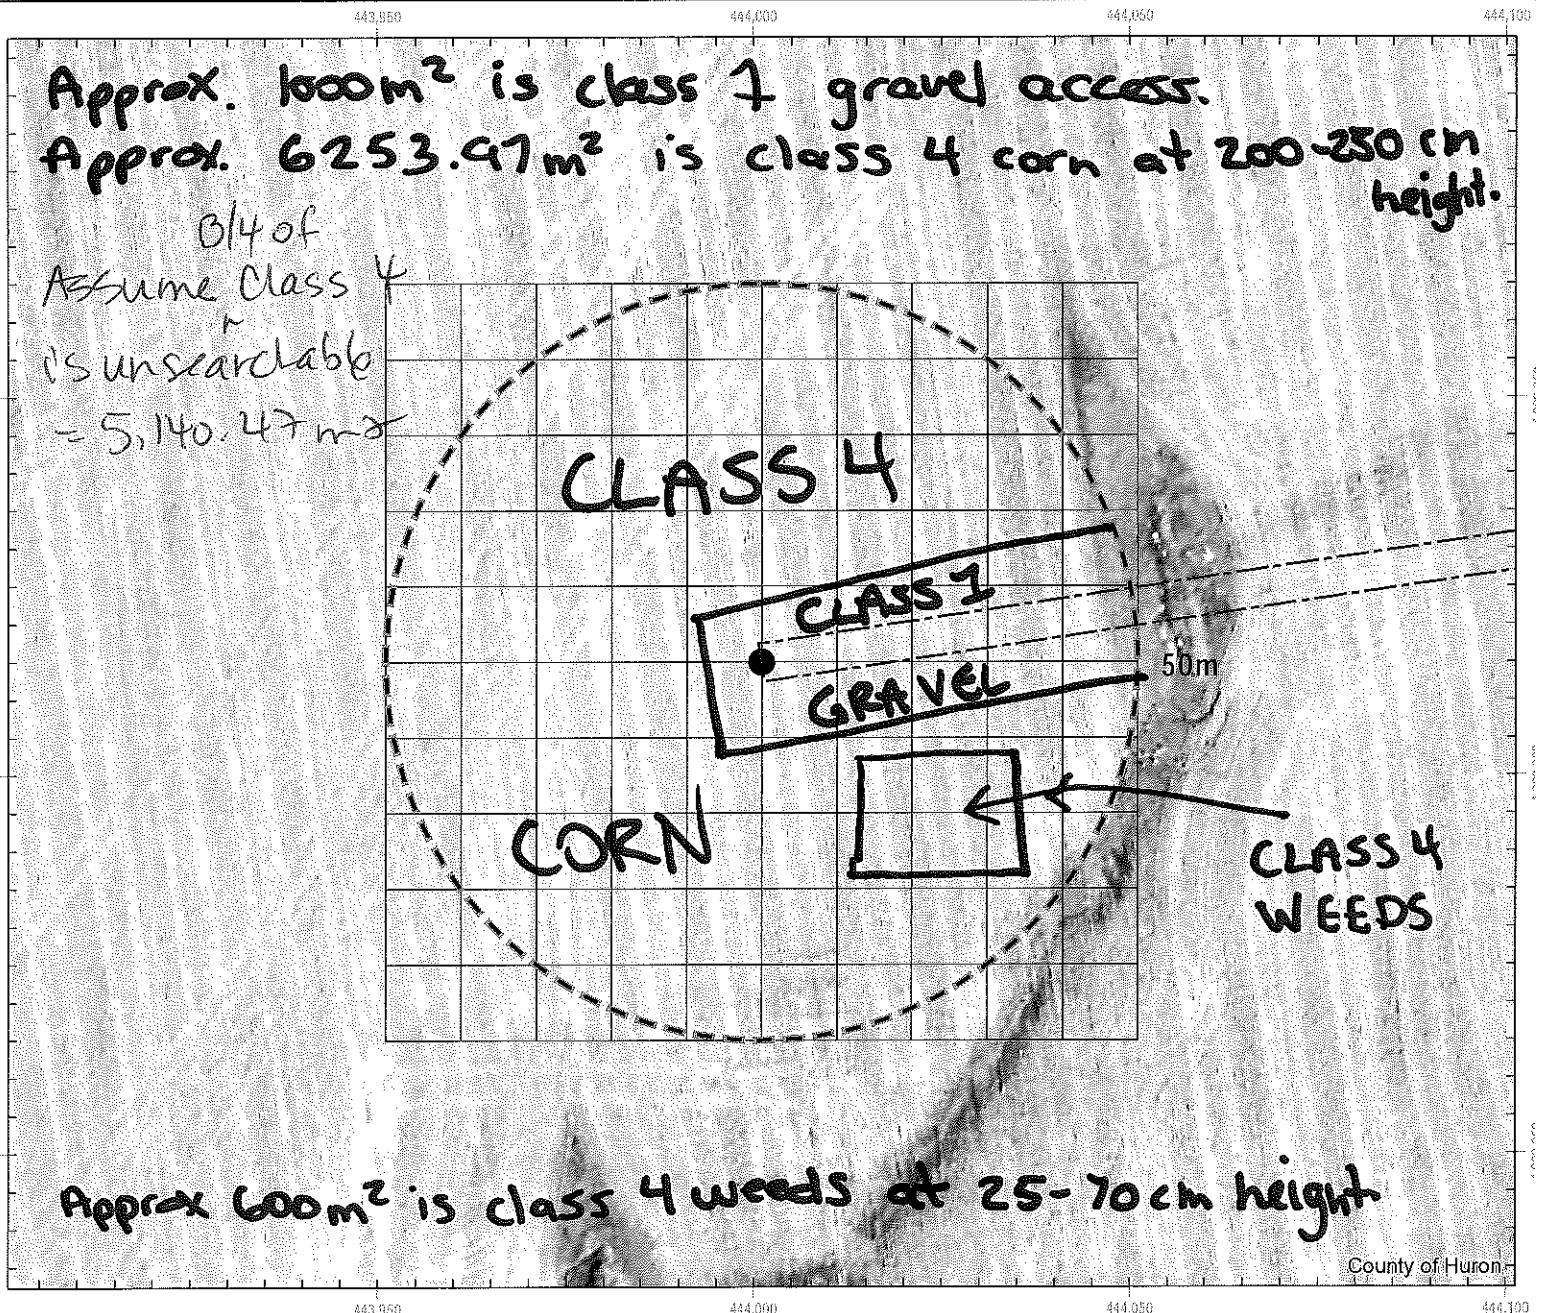 443,950 444,000 444,050 444,100
Approx. 1000m² is class 1 gravel access.
Approx. 6253.97m² is class 4 corn at 200-250 cm
height.
3/4 of
Assume Class 4
is unsearchable
= 5,140.47 m2
CLASS 4
CLASS 1
50m
GRAVEL
CORN
CLASS 4
WEEDS
Approx 600m² is class 4 weeds at 25-70cm height
County of Huron
443,950 444,000 444,050 444,100